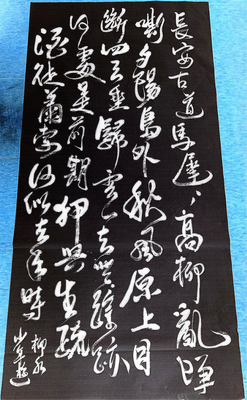 長安古道馬遲々高柳亂蟬
嘶夕陽島外秋風原上目
斷四天垂歸雲一去無蹤跡
何處是前期狎興生疏
酒徒蕭索不似去年時
柳永
少年遊